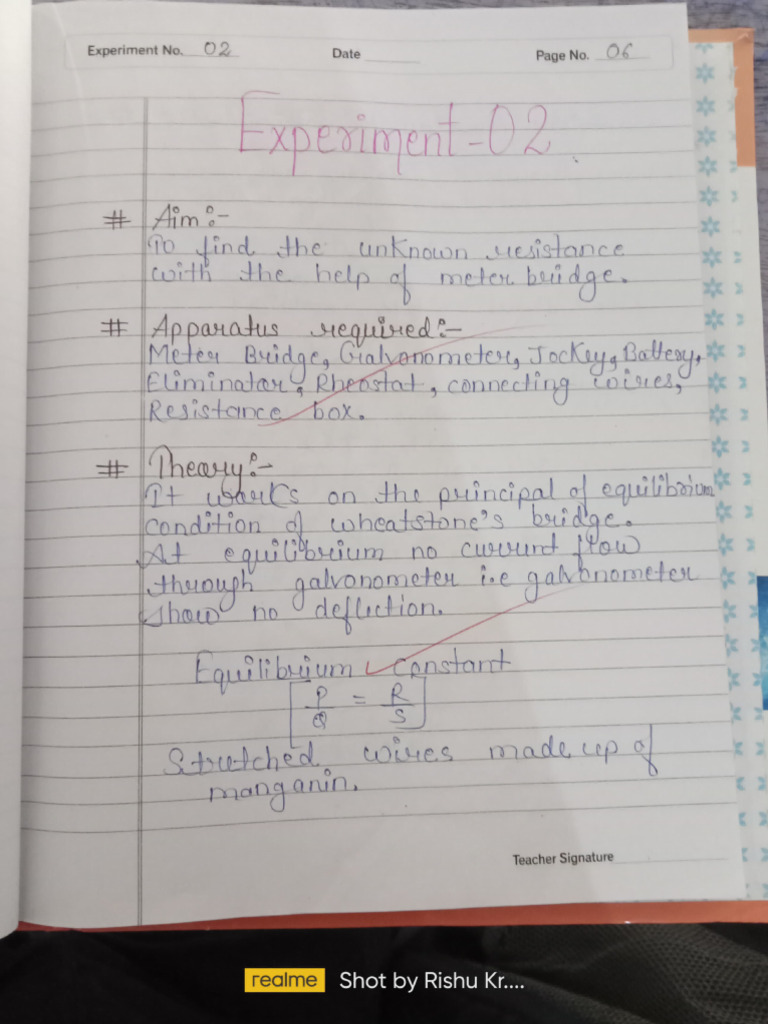 Experiment No. 02 Date Page No. 06
Experiment-02
# Aim:-
To find the unknown resistance
with the help of meter bridge.
# Apparatus required:-
Meter Bridge, Galvonometer, Jockey, Battery,
Eliminator, Rheostat, connecting wires,
Resistance box.
# Theory:-
It works on the principal of equilibrium
condition of wheatstone's bridge.
At equilibrium no current flow
through galvonometer i.e galvonometer
show no deflection.
Equilibrium constant
P/Q = R/S
Stretched wires made up of
manganin.
Teacher Signature
realme Shot by Rishu Kr....